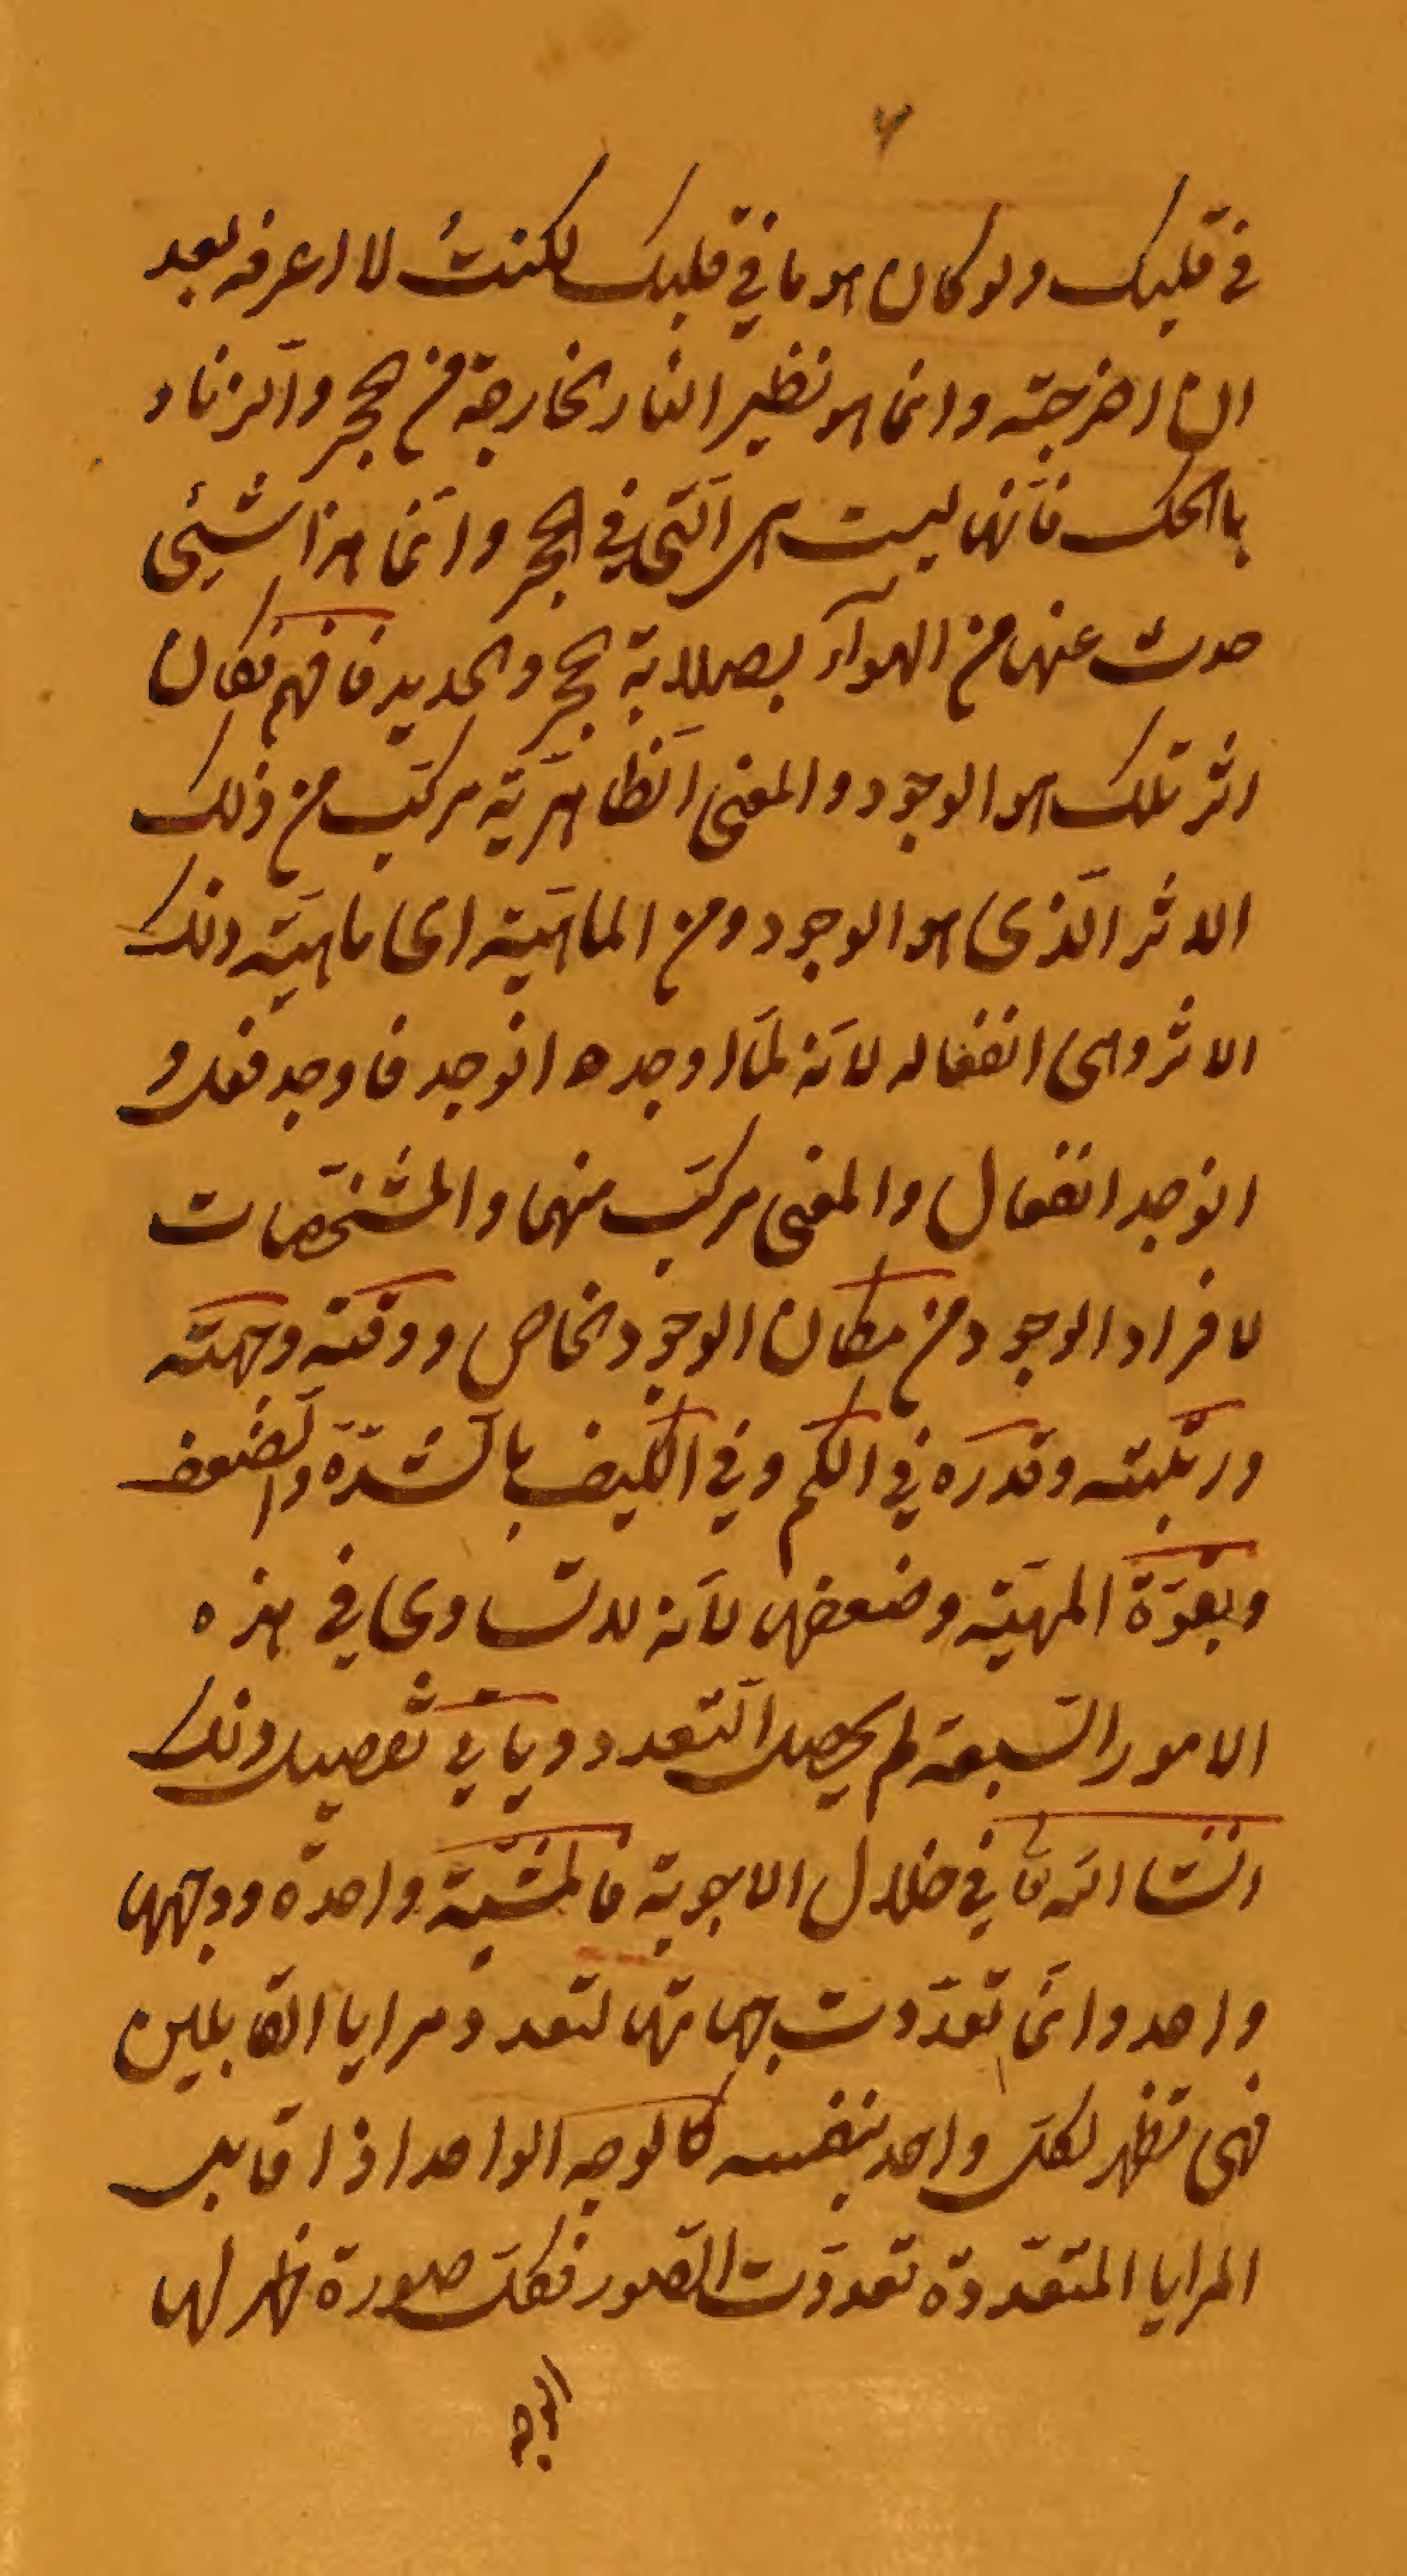 في قلبك ولو كان هو ما في قلبك لكنتُ لا اعرفه بعد
ان اخرجته وانما هو نظير النار الخارجة من الحجر والزناد
بالحك فانّها ليست هي الّتي في الحجر وانّما هذا شيئ
حدث عنها من الهوآء بصلابة الحجر والحديد فافهم فكان
اثر تلك هو الوجود والمعنى الظاهريّة مركّب من ذلك
الاثر الّذي هو الوجود ومن الماهيّة اى ماهيّة ذلك
الاثر وهى انفعاله لانّه لمّا اوجده انوجد فاوجد فعل و
انوجد انفعال والمعنى مركّب منهما والمشخّصات
لافراد الوجود من مكان الوجود الخاص ووقته وجهته
ورتبته وقدره في الكم وفي الكيف بالشدّة والضعف
وبقوّة المهيّة وضعفها لانّه لو تساوى في هذه
الامور السّبعة لم يحصل التّعدد وياتي تفصيل ذلك
انشا الله تعا في خلال الاجوبة فالمشيّة واحدة ووجهها
واحد وانّما تعدّدت جهاتها لتعدد مرايا القابلين
فهى تظهر لكل واحد بنفسه كالوجه الواحد اذا قابل
المرايا المتعدّدة تعدّدت الصّور فكلّ صورة ظهر لها
الوجه